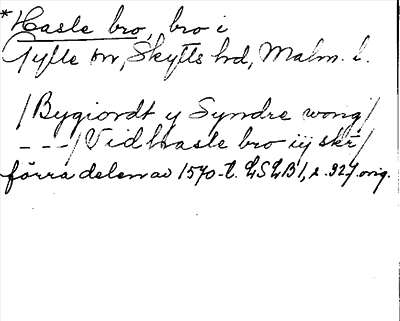 *Hasle bro, bro i
Gylle sn, Skytts hd, Malm. l.
/Bygiordt y Syndre wong/
---/Vid hasle bro iij skr/
förra delen av 1570-t. LSLB1, s. 327 orig.